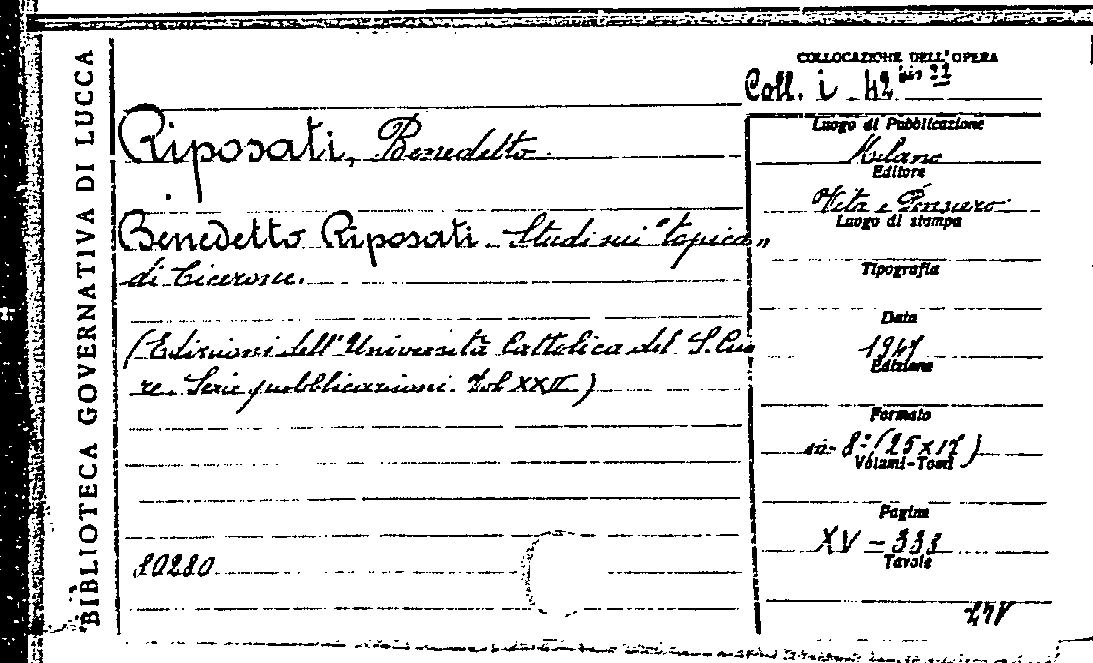 BIBLIOTECA GOVERNATIVA DI LUCCA
COLLOCAZIONE DELL'OPERA
Coll. i 42
Riposati, Benedetto
Benedetto Riposati - Studi sui "topica"
di Cicerone.
(Edizioni dell'Università Cattolica del S. Cuo
re. Serie pubblicazioni. Vol XXII)
80280
Luogo di Pubblicazione
Milano
Editore
Vita e Pensiero
Luogo di stampa
Tipografia
Data
1947
Edizione
Formato
in-8° (25x17)
Volumi-Tomi
Pagine
XV - 333
Tavole